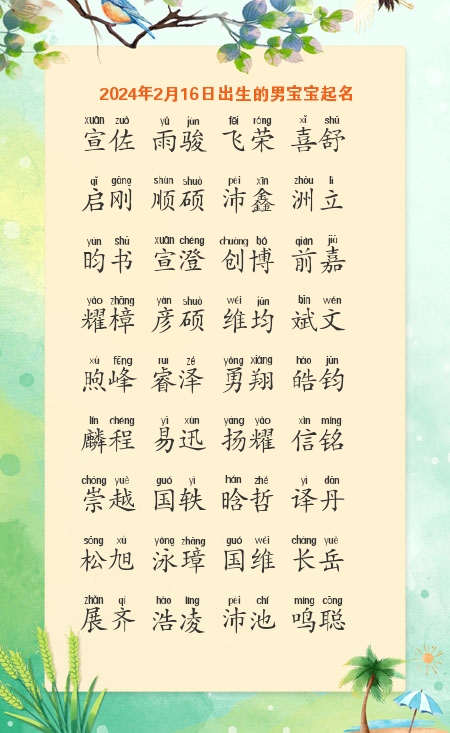 2024年2月16日出生的男宝宝起名
xuān zuǒ yǔ jùn fēi róng xǐ shū
宣佐 雨骏 飞荣 喜舒
qǐ gāng shùn shuò pèi xīn zhōu lì
启刚 顺硕 沛鑫 洲立
yún shū xuān chéng chuàng bó qián jiā
昀书 宣澄 创博 前嘉
yào zhāng yàn shuò wéi jūn bīn wén
耀樟 彦硕 维均 斌文
xù fēng ruì zé yǒng xiáng hào jūn
煦峰 睿泽 勇翔 皓钧
lín chéng yì xùn yáng yào xìn míng
麟程 易迅 扬耀 信铭
chóng yuè guó yì hán zhé yì dān
崇越 国轶 晗哲 译丹
sōng xù yǒng zhāng guó wéi cháng yuè
松旭 泳璋 国维 长岳
zhǎn qí hào líng pèi chí míng cōng
展齐 浩凌 沛池 鸣聪